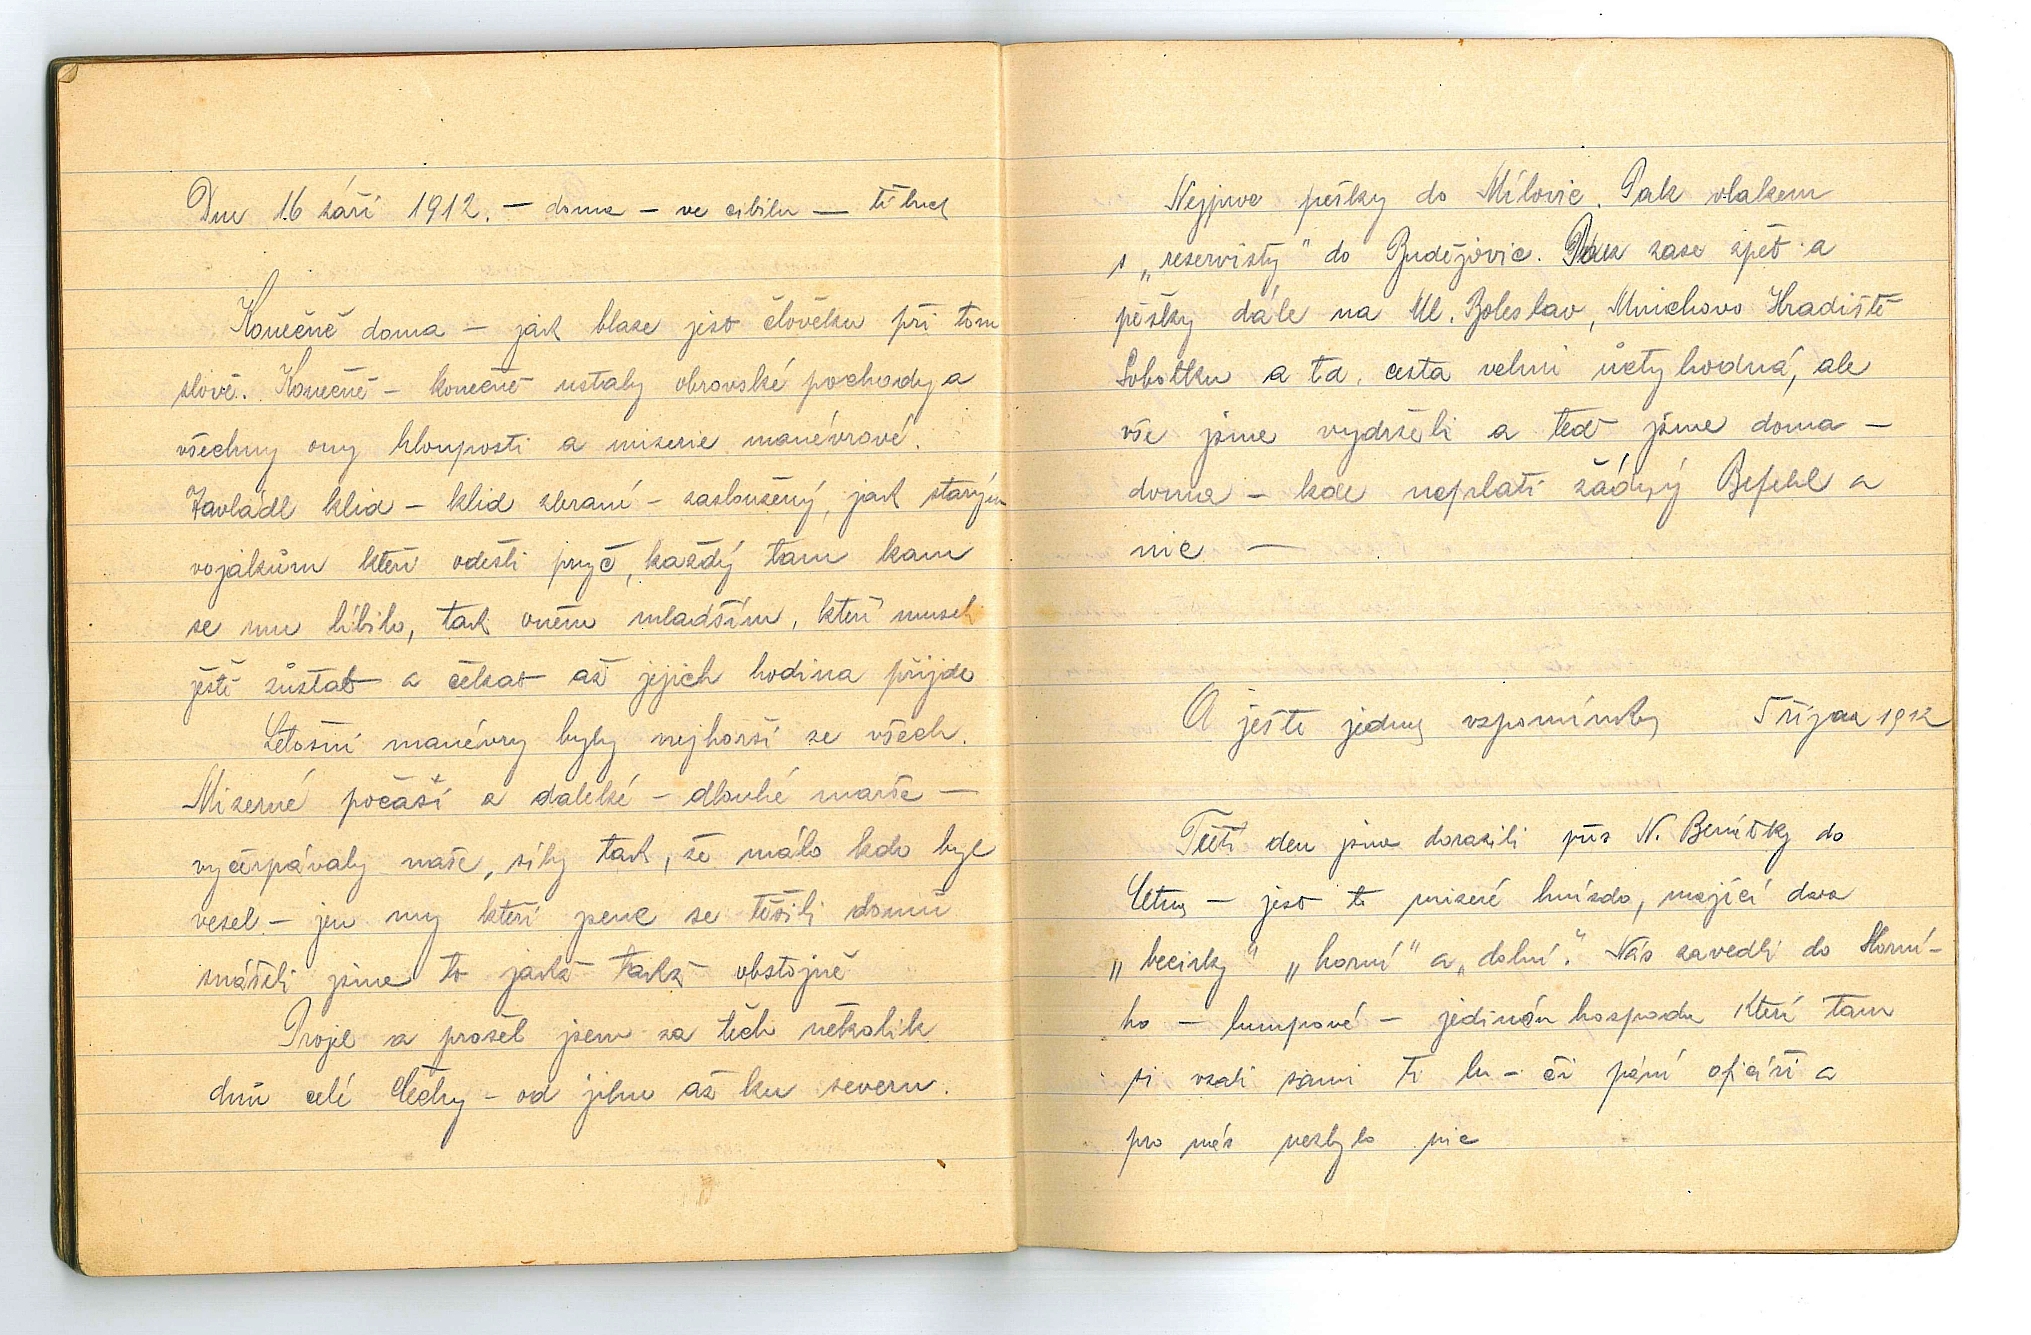 Dne 16 září 1912. – doma – ve cibilu –
Konečně doma – jak blaze jest člověku při tom
slově. Konečně – konečně ustaly obrovské pochody a
všechny ony hlouposti a miserie manévrové.
Zavládl klid – klid zbraní – zasloužený, jak starým
vojákům kteří odešli pryč, každý tam kam
se mu líbilo, tak oněm mladším, kteří museli
ještě zůstat a čekat až jejich hodina přijde
Letošní manévry byly nejhorší ze všech.
Mizerné počasí a daleké – dlouhé marše –
vyčerpávaly naše síly tak, že málo kdo byl
vesel – jen my kteří jsme se těšili domů
snášeli jsme to jakž takž obstojně
Projel a prošel jsem za těch několik
dnů celé Čechy – od jihu až ku severu.
Nejprve pěšky do Milovic. Pak vlakem
s „reservisty" do Budějovic. Pak zase zpět a
pěšky dále na Ml. Boleslav, Mnichovo Hradiště
Sobotku a td. cesta velmi úctyhodná, ale
vše jsme vydrželi a teď jsme doma –
doma – kde neplatí žádný Befehl a
nic –
A ještě jedny vzpomínky 5 října 1912
Třetí den jsme dorazili přes N. Benátky do
– jest to mizerné hnízdo, mající dva
„horní" a „dolní". Nás zavedli do Horní-
ho – lumpové – jedinou hospodu kteří tam
si vzali sami ti lu – či páni oficíři a
pro nás nezbylo nic